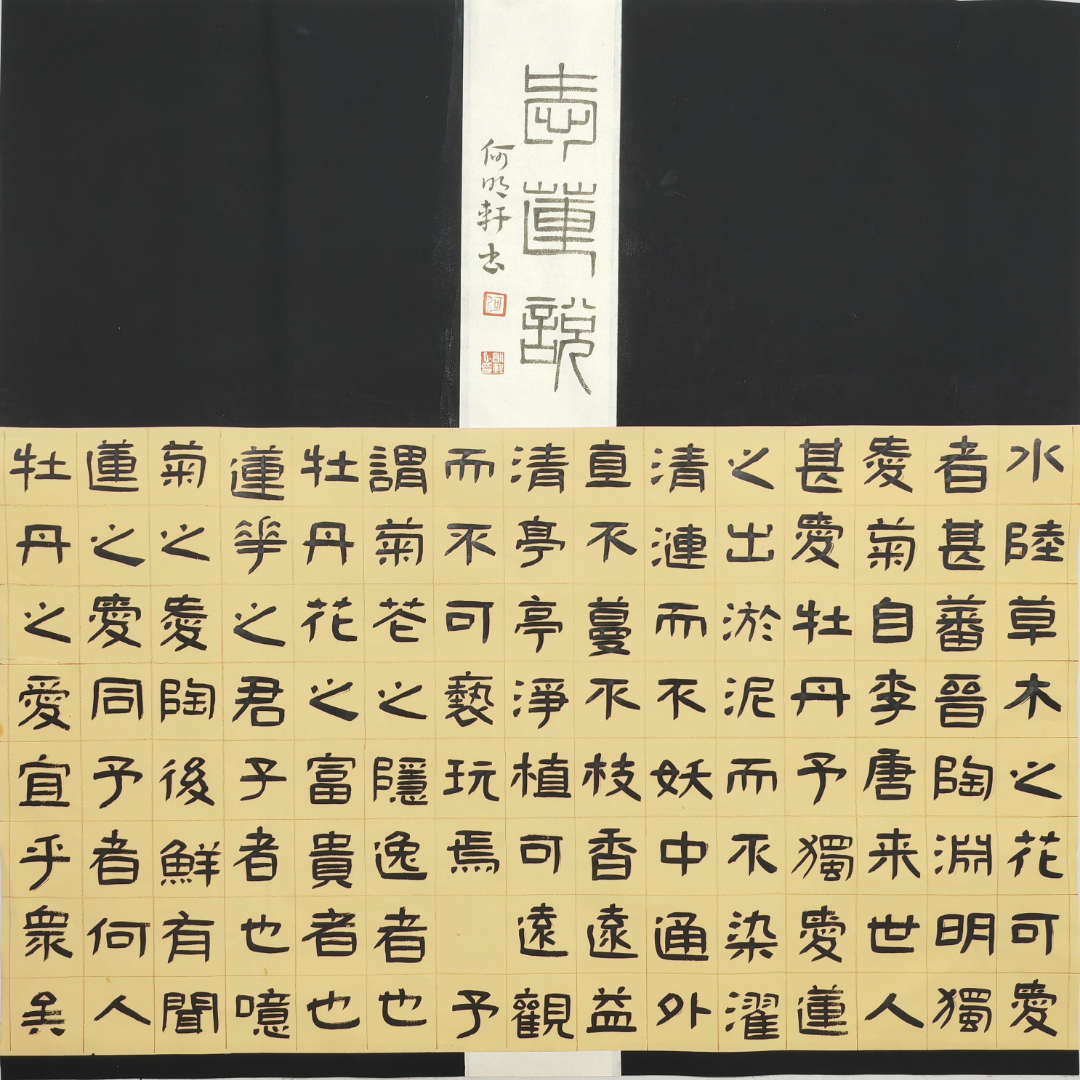 愛蓮說
何明軒书
水陸草木之花可愛
者甚蕃晉陶淵明獨
愛菊自李唐来世人
甚愛牡丹予獨愛蓮
之出淤泥而不染濯
清漣而不妖中通外
直不蔓不枝香遠益
清亭亭淨植可遠觀
而不可褻玩焉 予
謂菊花之隱逸者也
牡丹花之富貴者也
蓮華之君子者也噫
菊之愛陶後鮮有聞
蓮之愛同予者何人
牡丹之愛宜乎衆矣